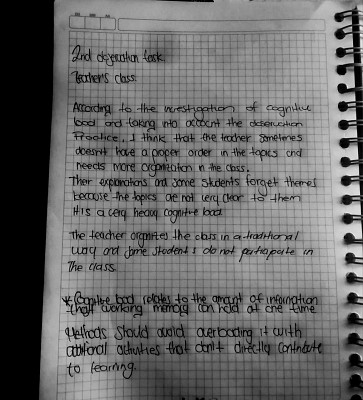 2nd observation task
Teacher's class.
According to the investigation of cognitive
load and taking into account the observation
Practice, I think that the teacher sometimes
doesn't have a proper order in the topics and
needs more organization in the class.
Their explanations and some students forget themes
because the topics are not very clear to them
It is a very heavy cognitive load
The teacher organizes the class in a traditional
way and some students do not participate in
The class.
* Cognitive load relates to the amount of information
that working memory can hold at one time
Methods should avoid overloading it with
additional activities that don't directly contribute
to learning.